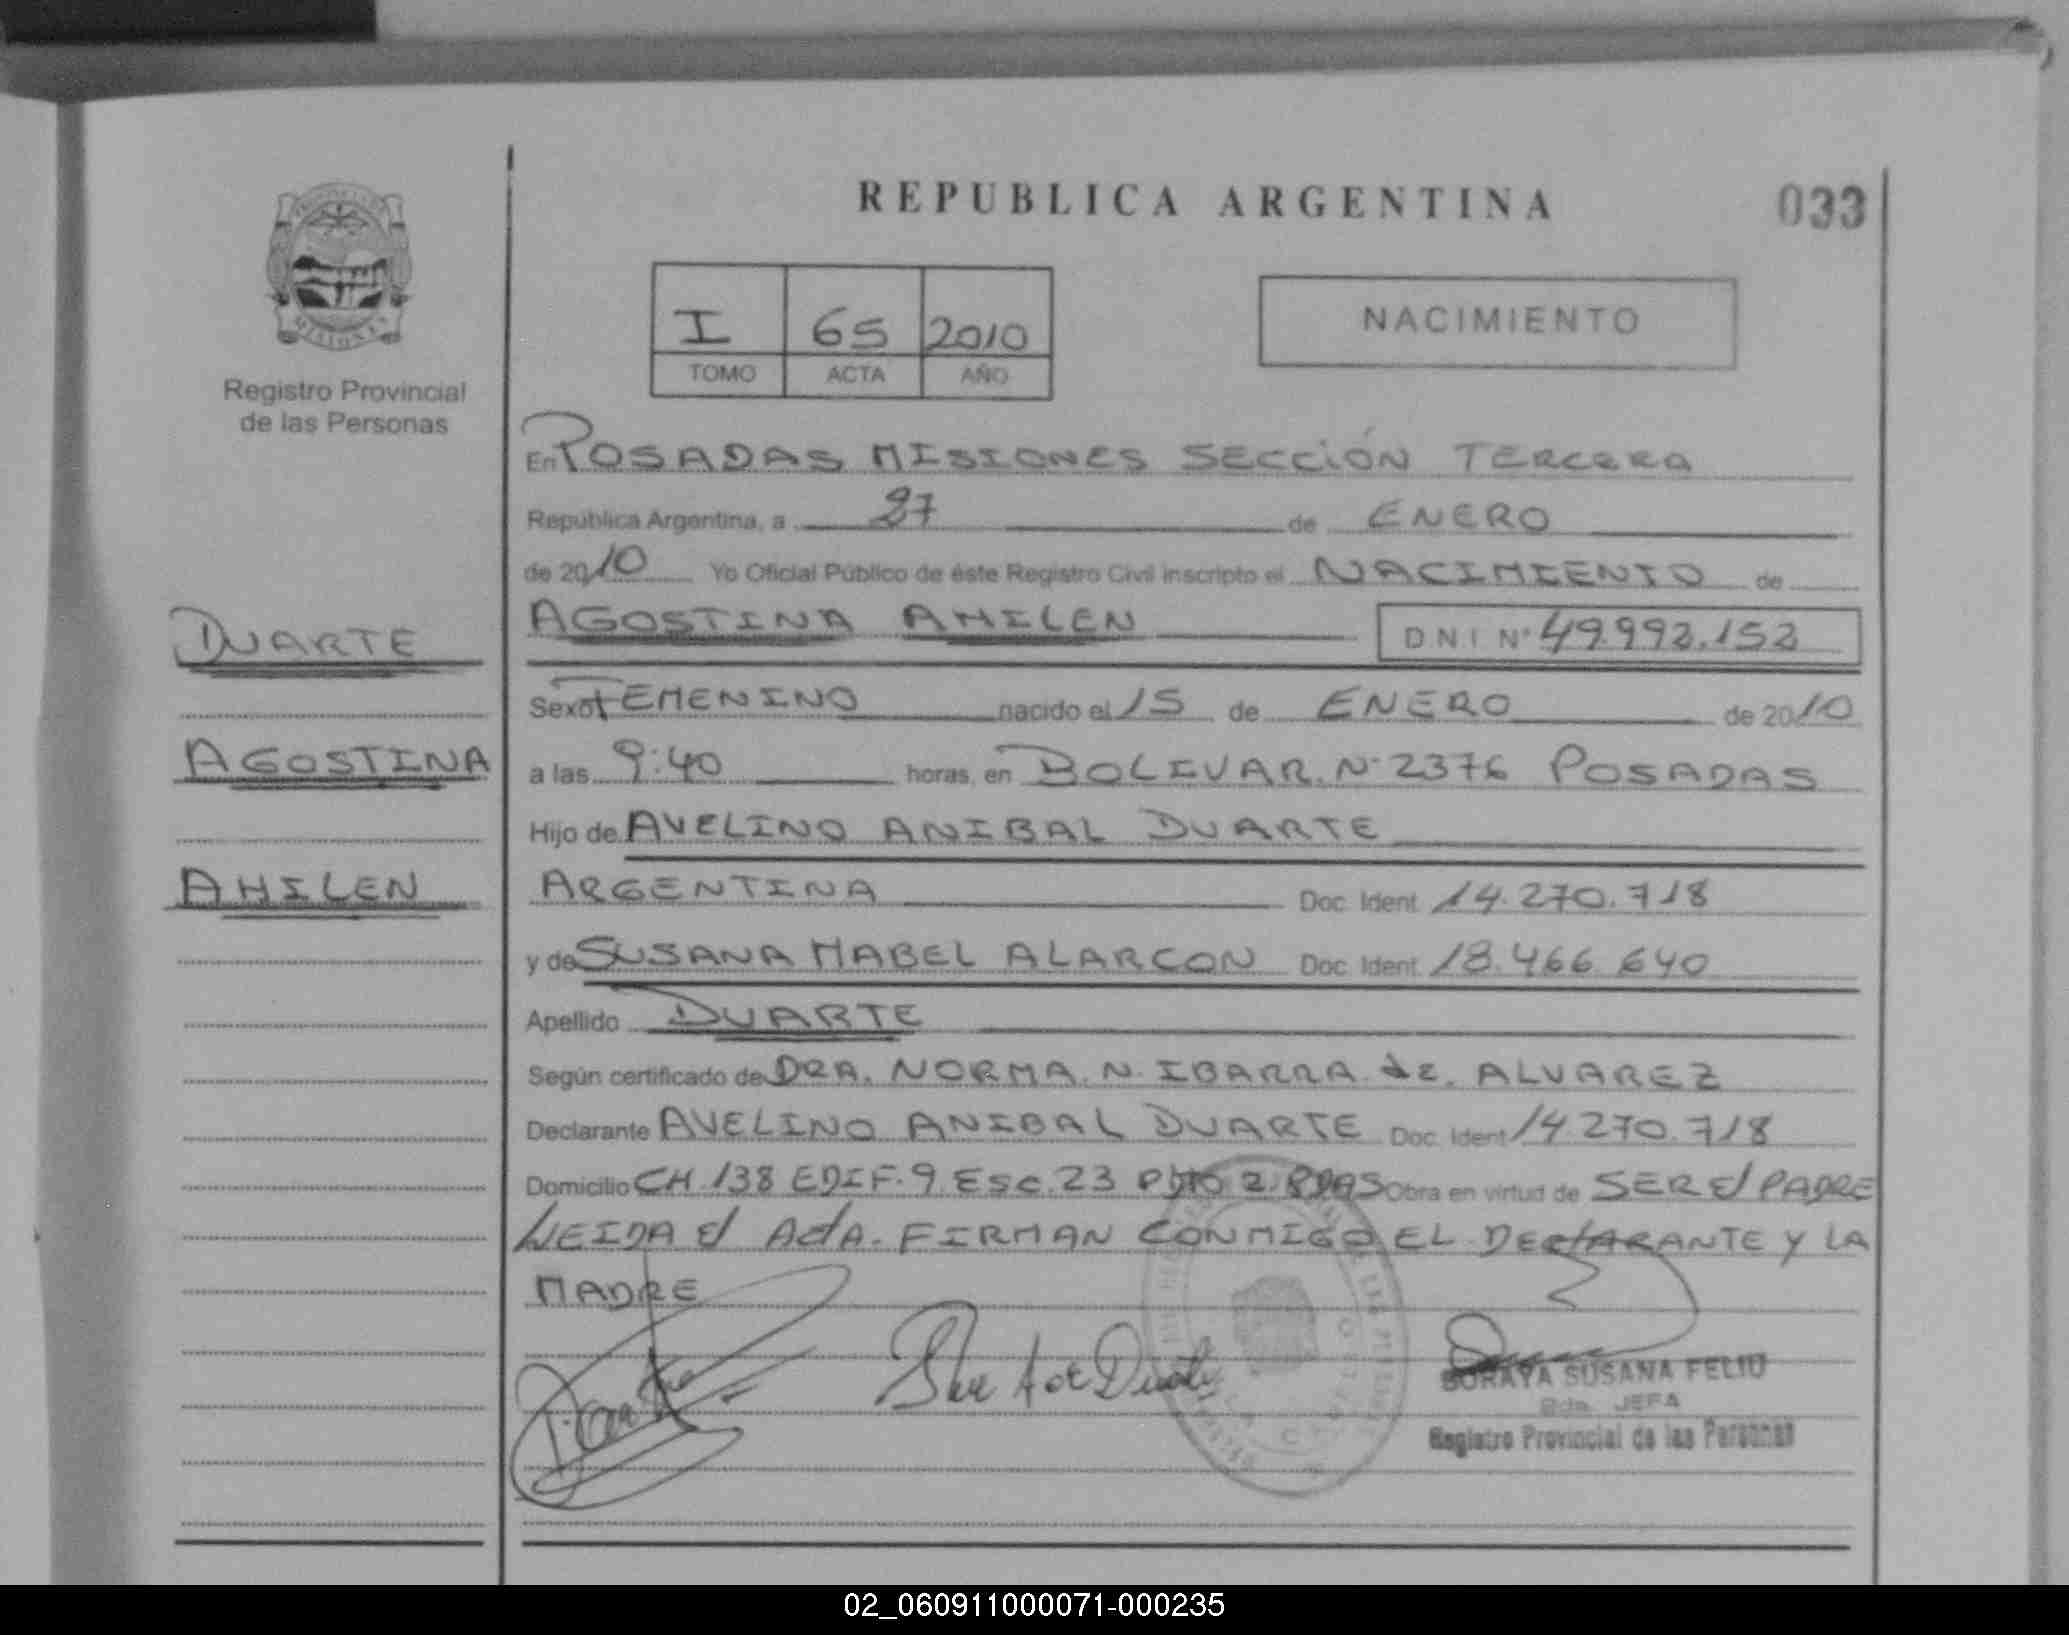 REPUBLICA ARGENTINA
033
I 65 2010
TOMO ACTA AÑO
NACIMIENTO
Registro Provincial
de las Personas
En POSADAS MISIONES SECCIÓN TERCERA
República Argentina, a 27 de ENERO
de 2010 Yo Oficial Público de éste Registro Civil inscripto el NACIMIENTO de
AGOSTINA AHILEN D.N.I. Nº 49.992.152
DUARTE
Sexo FEMENINO nacido el 15 de ENERO de 2010
AGOSTINA
a las 9:40 horas, en BOLIVAR. Nº 2376 POSADAS
Hijo de AVELINO ANIBAL DUARTE
AHILEN
ARGENTINA Doc. Ident. 14.270.718
y de SUSANA MABEL ALARCON Doc. Ident. 18.466.640
Apellido DUARTE
Según certificado de DRA. NORMA. N. IBARRA de. ALVAREZ
Declarante AVELINO ANIBAL DUARTE Doc. Ident. 14.270.718
Domicilio CH. 138 EDIF. 9 Esc. 23 PDAS Obra en virtud de SER el PADRE
LEIDA el ActA. FIRMAN CONMIGO EL DEClARANTE y LA
MADRE
SORAYA SUSANA FELIU
JEFA
Registro Provincial de las Personas
02_060911000071-000235